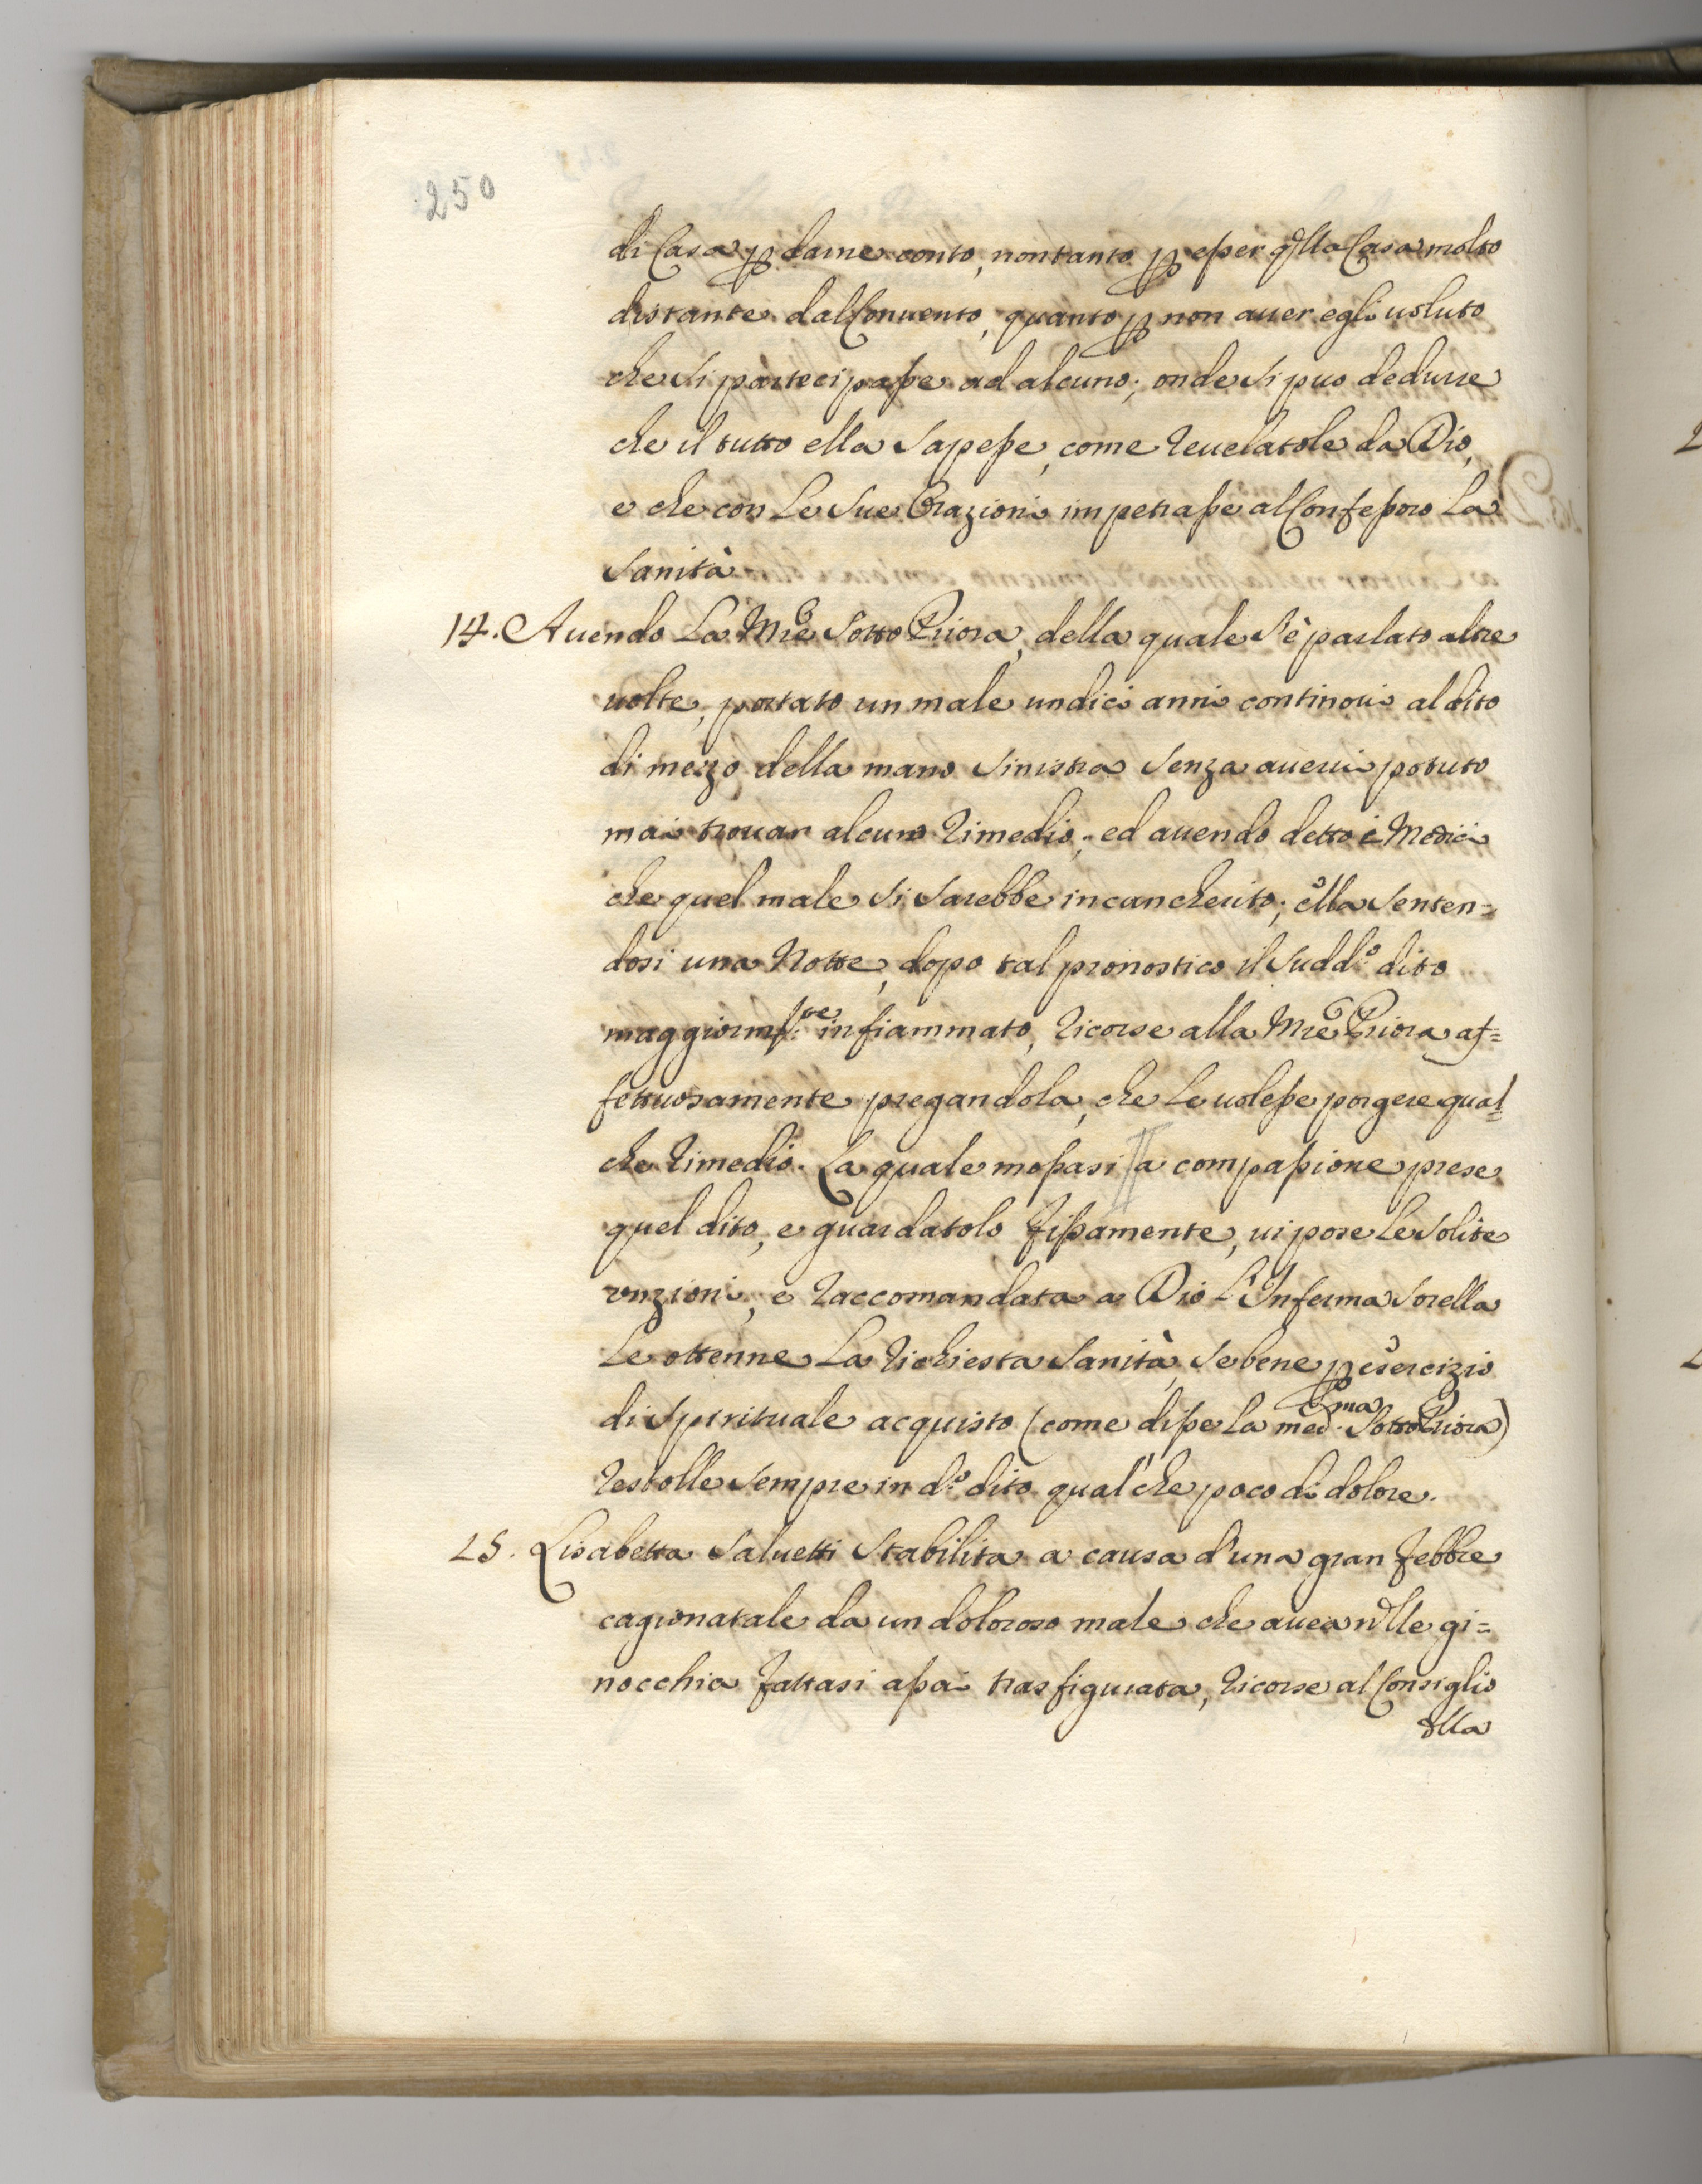 250
di Casa p darne conto, non tanto p esser q.lla Casa molto
distante dal Conuento, quanto p non auer egli uoluto
che si partecipasse ad alcuno; onde si puo dedurre
che il tutto ella sapesse, come reuelatole da Dio,
e che con le sue Orazioni impetrasse al Confessoro la
sanità
14. Auendo la Mre Sotto Priora, della quale s'è parlato altre
uolte, portato un male undici anni continoui al dito
di mezzo della mano sinistra senza auerui potuto
mai trouar alcuno rimedio; ed auendo detto i Medici
che quel male si sarebbe incancherito; ella senten=
dosi una Notte, dopo tal pronostico il sudd.o dito
maggiorm.te infiammato, ricorse alla Mre Priora af=
fettuosamente pregandola, che le uolesse porgere qual=
che rimedio. La quale mossasi a compassione prese
quel dito, e guardatolo fissamente, ui pose le solite
vnzioni, e raccomandata a Dio l'Inferma Sorella
le ottenne la richiesta sanità, se bene p esercizio
di spirituale acquisto (come disse la med.ma Sotto Priora)
restolle sempre in d.o dito qual'che poco di dolore.
15. Lisabetta Saluetti stabilita a causa d'una gran febbre
cagionatale da un doloroso male che auea nelle gi=
nocchia fattasi assai trasfigurata, ricorse al Consiglio
della